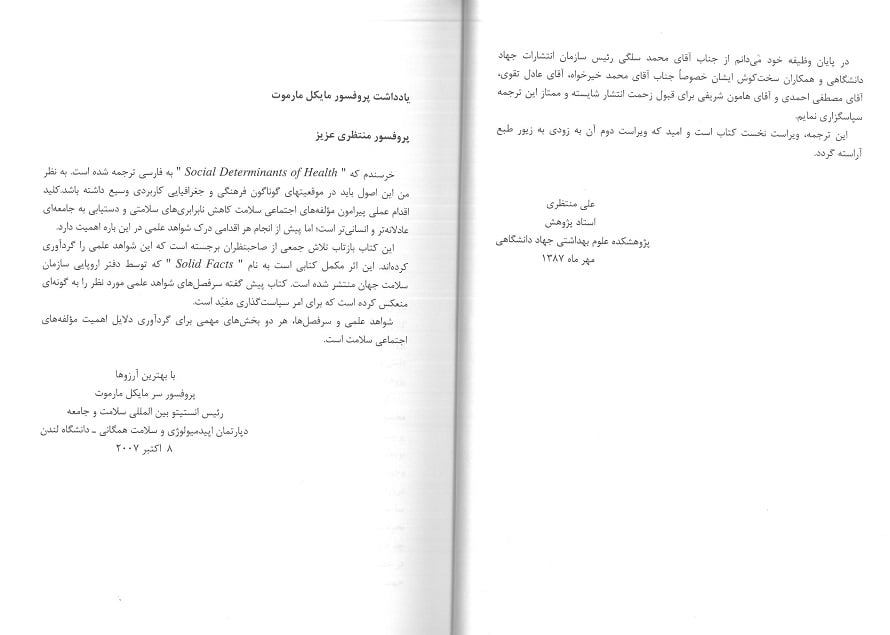 در پایان وظیفه خود می‌دانم از جناب آقای محمد سلگی رئیس سازمان انتشارات جهاد
دانشگاهی و همکاران سخت‌کوش ایشان خصوصاً جناب آقای محمد خیرخواه، آقای عادل تقوی،
آقای مصطفی احمدی و آقای هامون شریفی برای قبول زحمت انتشار شایسته و ممتاز این ترجمه
سپاسگزاری نمایم.
این ترجمه، ویراست نخست کتاب است و امید که ویراست دوم آن به زودی به زیور طبع
آراسته گردد.
علی منتظری
استاد پژوهش
پژوهشکده علوم بهداشتی جهاد دانشگاهی
مهر ماه ۱۳۸۷
یادداشت پروفسور مایکل مارموت
پروفسور منتظری عزیز
خرسندم که " Social Determinants of Health " به فارسی ترجمه شده است. به نظر
من این اصول باید در موقعیتهای گوناگون فرهنگی و جغرافیایی کاربردی وسیع داشته باشد.کلید
اقدام عملی پیرامون مؤلفه‌های اجتماعی سلامت کاهش نابرابری‌های سلامتی و دستیابی به جامعه‌ای
عادلانه‌تر و انسانی‌تر است؛ اما پیش از انجام هر اقدامی درک شواهد علمی در این باره اهمیت دارد.
این کتاب بازتاب تلاش جمعی از صاحبنظران برجسته است که این شواهد علمی را گردآوری
کرده‌اند. این اثر مکمل کتابی است به نام " Solid Facts " که توسط دفتر اروپایی سازمان
سلامت جهان منتشر شده است. کتاب پیش گفته سرفصل‌های شواهد علمی مورد نظر را به گونه‌ای
منعکس کرده است که برای امر سیاست‌گذاری مفید است.
شواهد علمی و سرفصل‌ها، هر دو بخش‌های مهمی برای گردآوری دلایل اهمیت مؤلفه‌های
اجتماعی سلامت است.
با بهترین آرزوها
پروفسور سر مایکل مارموت
رئیس انستیتو بین المللی سلامت و جامعه
دپارتمان اپیدمیولوژی و سلامت همگانی ـ دانشگاه لندن
۸ اکتبر ۲۰۰۷